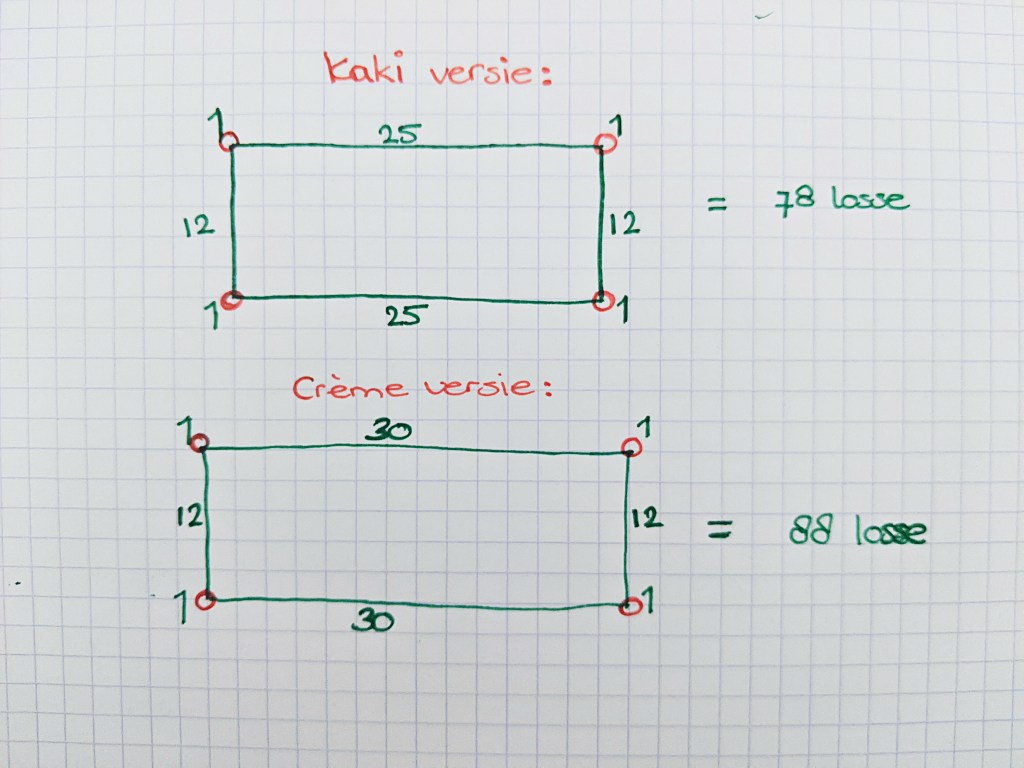 Kaki versie:
1 25 1
12 12 = 78 losse
1 25 1
Crème versie:
1 30 1
12 12 = 88 losse
1 30 1